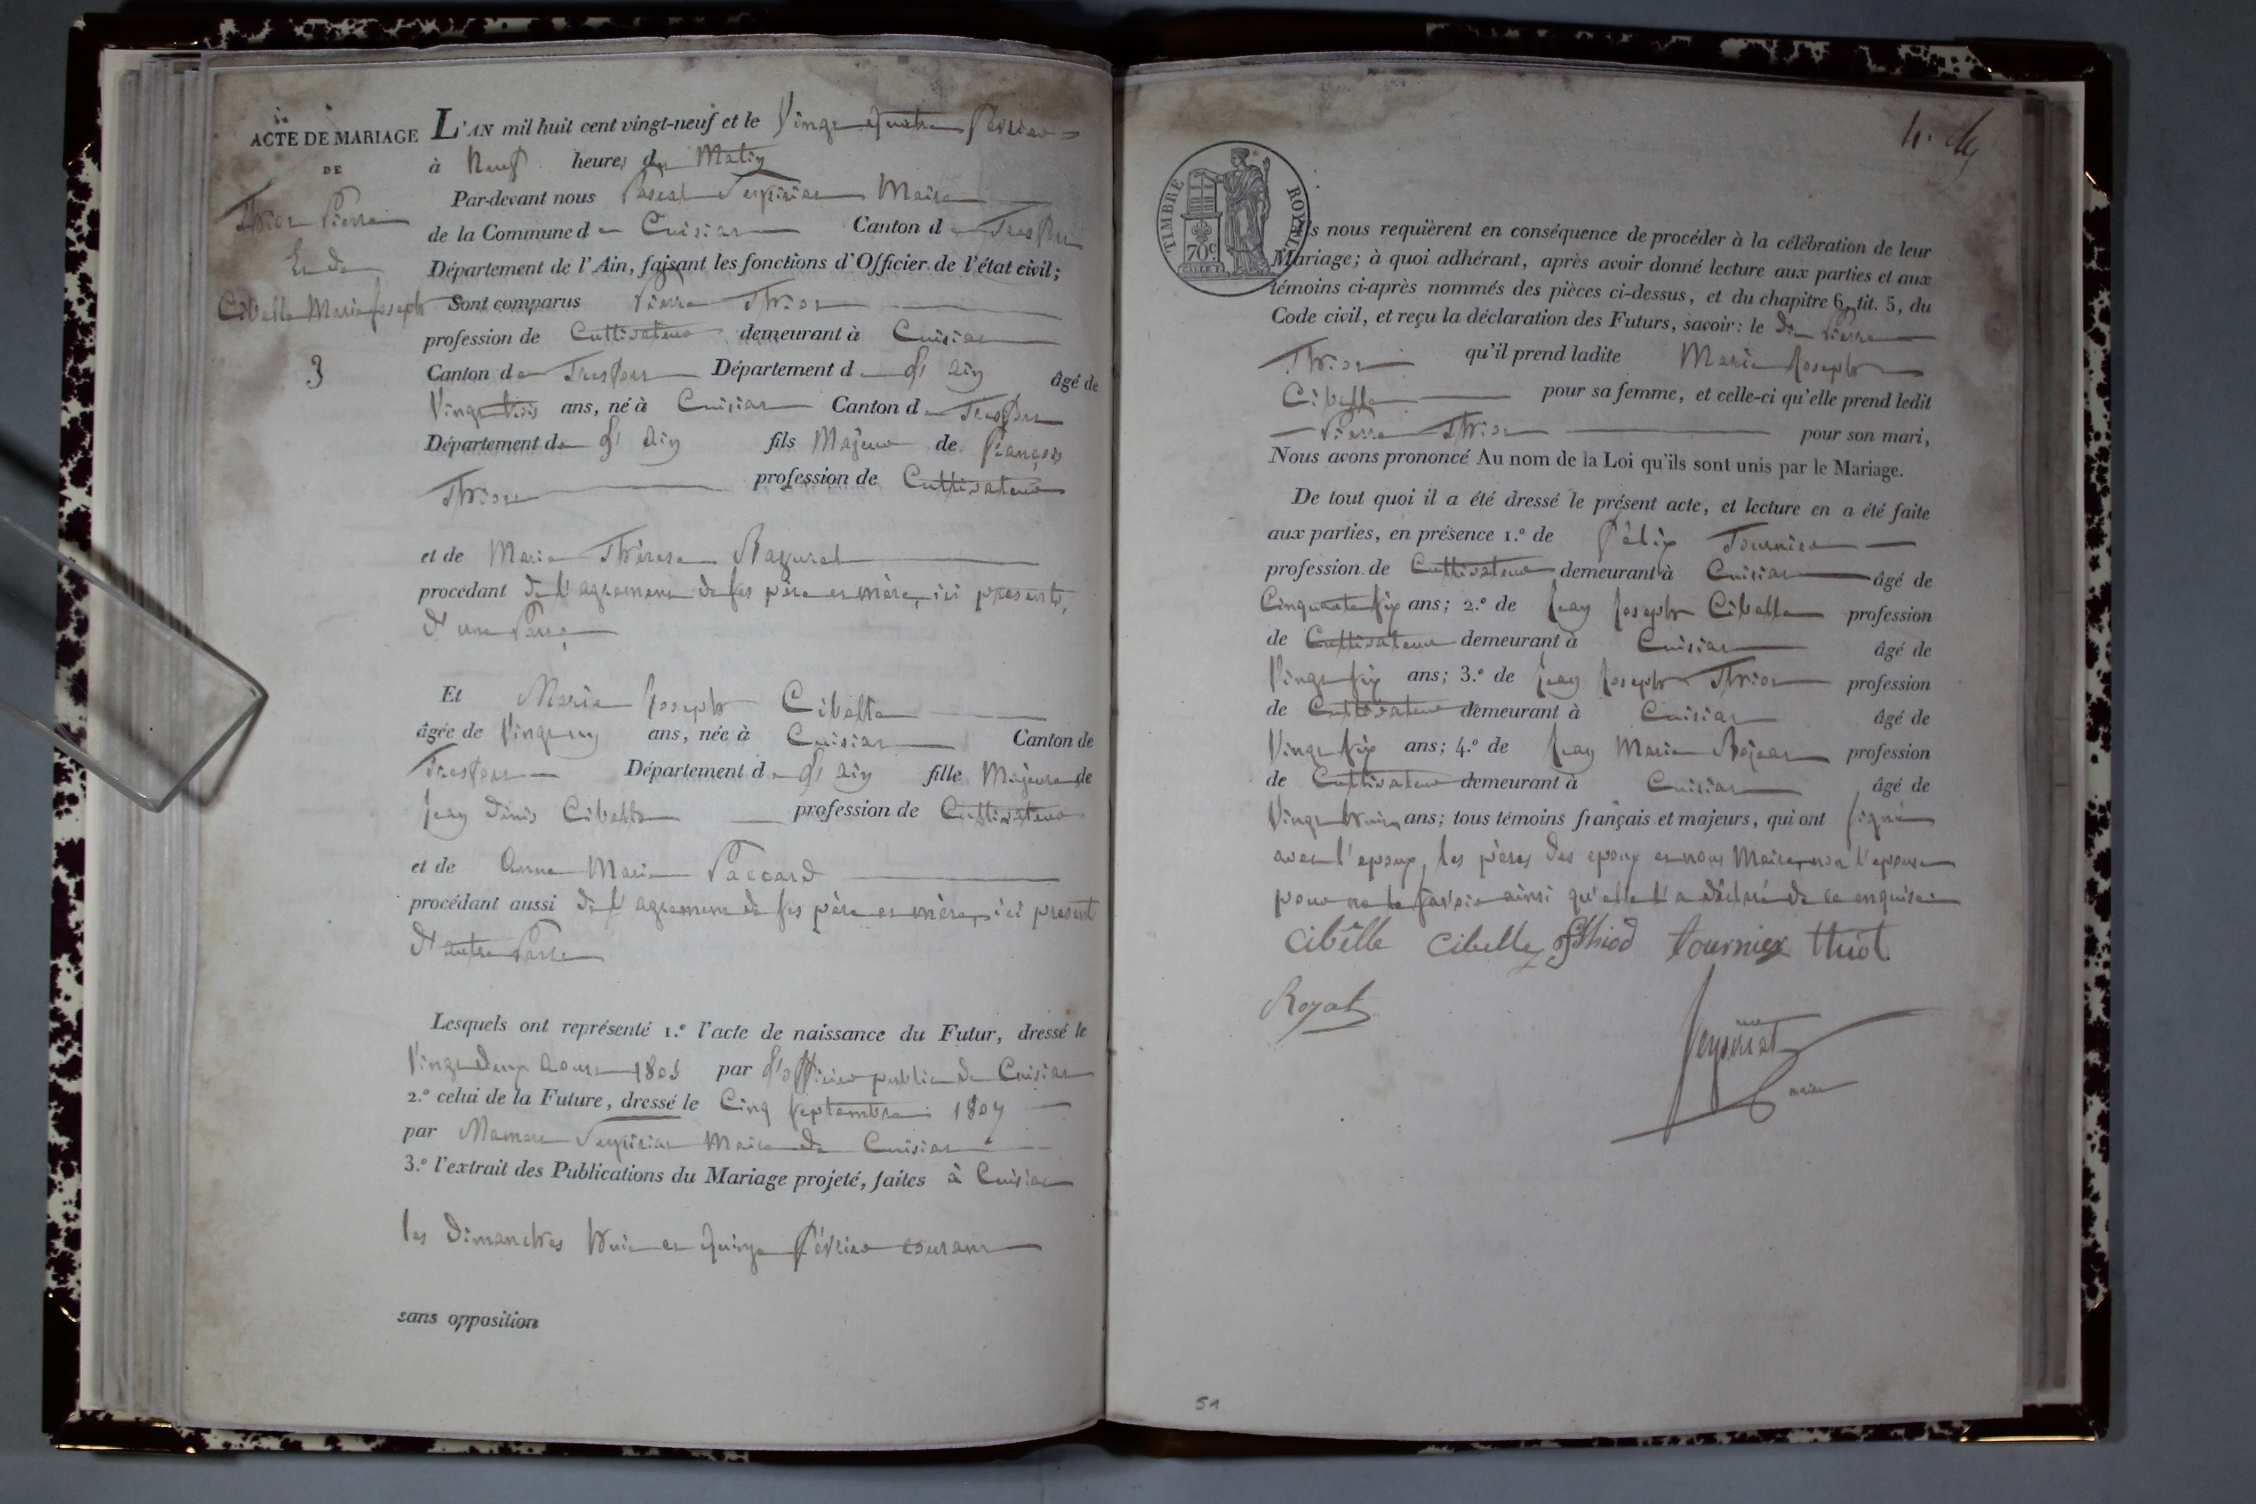 ACTE DE MARIAGE
DE
Thiot Pierre
Et de
Cibelle Marie Joseph
3
L'AN mil huit cent vingt-neuf et le Vingt quatre Février
à Neuf heures du Matin
Par-devant nous Pascal Seysiriat Maire
de la Commune de Cuisiat Canton de Treffort
Département de l'Ain, faisant les fonctions d'Officier de l'état civil;
Sont comparus Pierre Thiot
profession de Cultivateur demeurant à Cuisiat
Canton de Treffort Département de l'Ain âgé de
Vingt trois ans, né à Cuisiat Canton de Treffort
Département de l'Ain fils Majeur de François
Thiot profession de Cultivateur
et de Marie Thérese
procédant de l'agrement de ses père et mère, ici presents,
d'une Part
Et Marie Joseph Cibelle
âgée de Vingt un ans, née à Cuisiat Canton de
Treffort Département de l'Ain fille Majeure de
Jean Denis Cibelle profession de Cultivateur
et de Anne Marie Paccard
procédant aussi de l'agrement de ses père et mère, ici present
d'autre Part
Lesquels ont représenté 1.º l'acte de naissance du Futur, dressé le
Vingt deux Aout 1805 par l'officier public de Cuisiat
2.º celui de la Future, dressé le Cinq septembre 1807
par Seysiriat Maire de Cuisiat
3.º l'extrait des Publications du Mariage projeté, faites à Cuisiat
les dimanches huit et quinze Février courant
sans opposition
TIMBRE ROYAL
70c
s nous requièrent en conséquence de procéder à la célébration de leur
Mariage; à quoi adhérant, après avoir donné lecture aux parties et aux
témoins ci-après nommés des pièces ci-dessus, et du chapitre 6, tit. 5, du
Code civil, et reçu la déclaration des Futurs, savoir: le dit Pierre
Thiot qu'il prend ladite Marie Joseph
Cibelle pour sa femme, et celle-ci qu'elle prend ledit
Pierre Thiot pour son mari,
Nous avons prononcé Au nom de la Loi qu'ils sont unis par le Mariage.
De tout quoi il a été dressé le présent acte, et lecture en a été faite
aux parties, en présence 1.º de Félix Tournier
profession de Cultivateur demeurant à Cuisiat âgé de
Cinquante six ans; 2.º de Jean Joseph Cibelle profession
de Cultivateur demeurant à Cuisiat âgé de
Vingt six ans; 3.º de Jean Joseph Thiot profession
de Cultivateur demeurant à Cuisiat âgé de
Vingt six ans; 4.º de Jean Marie profession
de Cultivateur demeurant à Cuisiat âgé de
Vingt huit ans; tous témoins français et majeurs, qui ont signé
avec l'epoux, les pères des epoux et nous Maire, non l'epouse
pour ne le savoir ainsi qu'elle l'a déclaré de ce enquise
Cibelle Cibelle Thiod tournier thiot
Royat
Seysiriat
maire
51